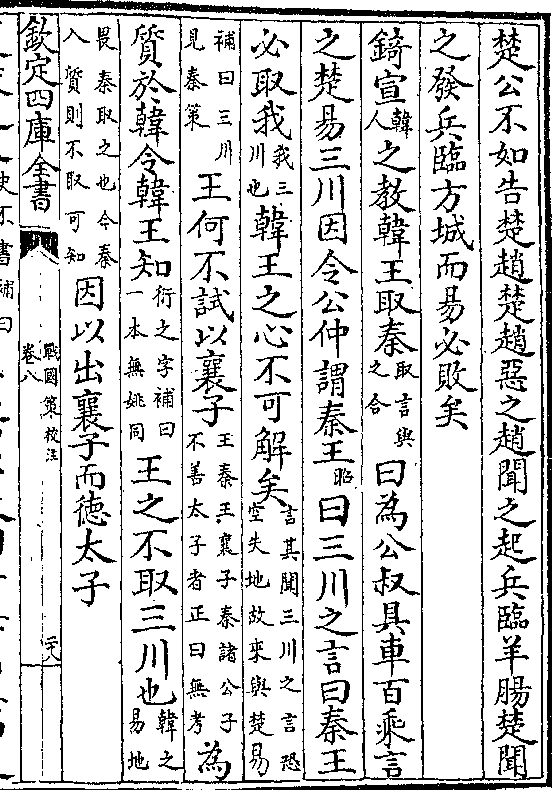 楚公不如告楚趙楚趙惡之趙聞之起兵臨羊腸楚聞
之發兵臨方城而易必敗矣
錡宣韓人之教韓王取秦取言與之合曰為公叔具車百乘言
之楚易三川因令公仲謂秦王昭曰三川之言曰秦王
必取我我三川也韓王之心不可解矣言其聞三川之言恐空失地故來與楚易
補曰三川見秦策王何不試以襄子王秦王襄子秦諸公子不善太子者正曰無考為
質於韓令韓王知衍之字補曰一本無姚同王之不取三川也韓之易地
畏秦取之也令秦入質則不取可知因以出襄子而德太子
欽定四庫全書
戰國策校注
卷八
二十八